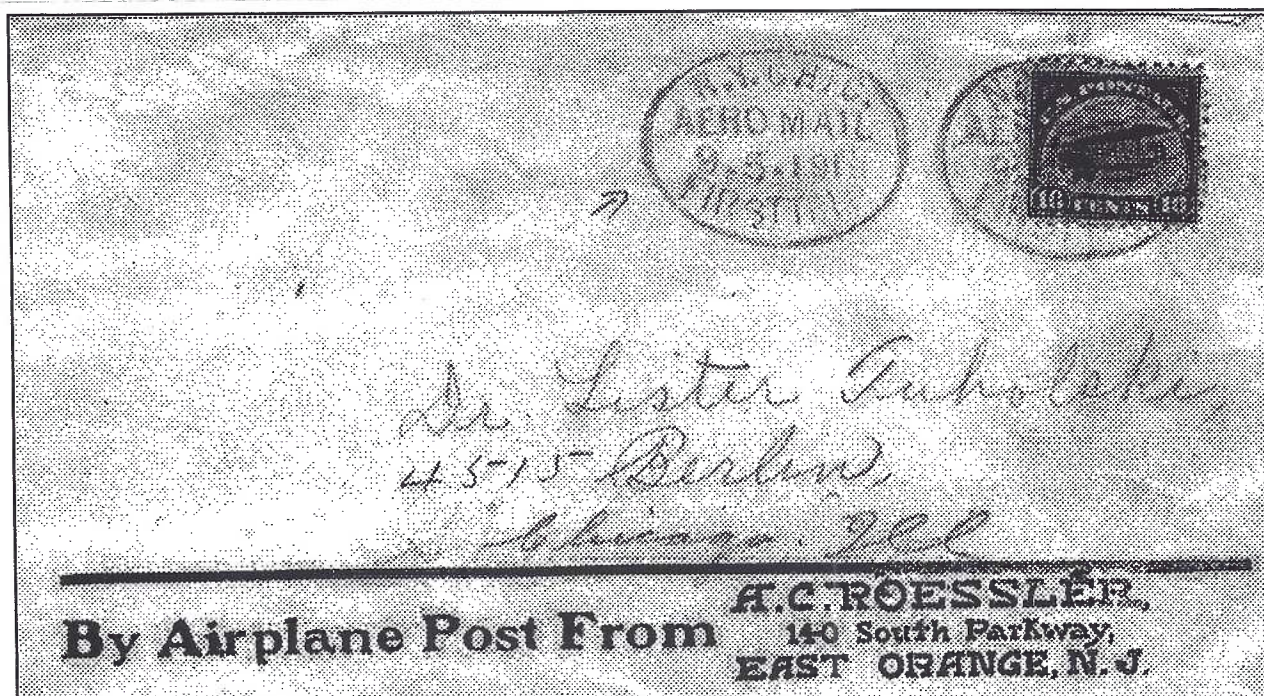 N.Y. CHIC.
AERO MAIL
9.5.191
FIRST TRI
U.S. POSTAGE
10 CENTS 10
Dr. Lister Tuholske,
4515 Berlin,
Chicago. Ill
By Airplane Post From
A.C. ROESSLER,
140 South Parkway,
EAST ORANGE, N.J.